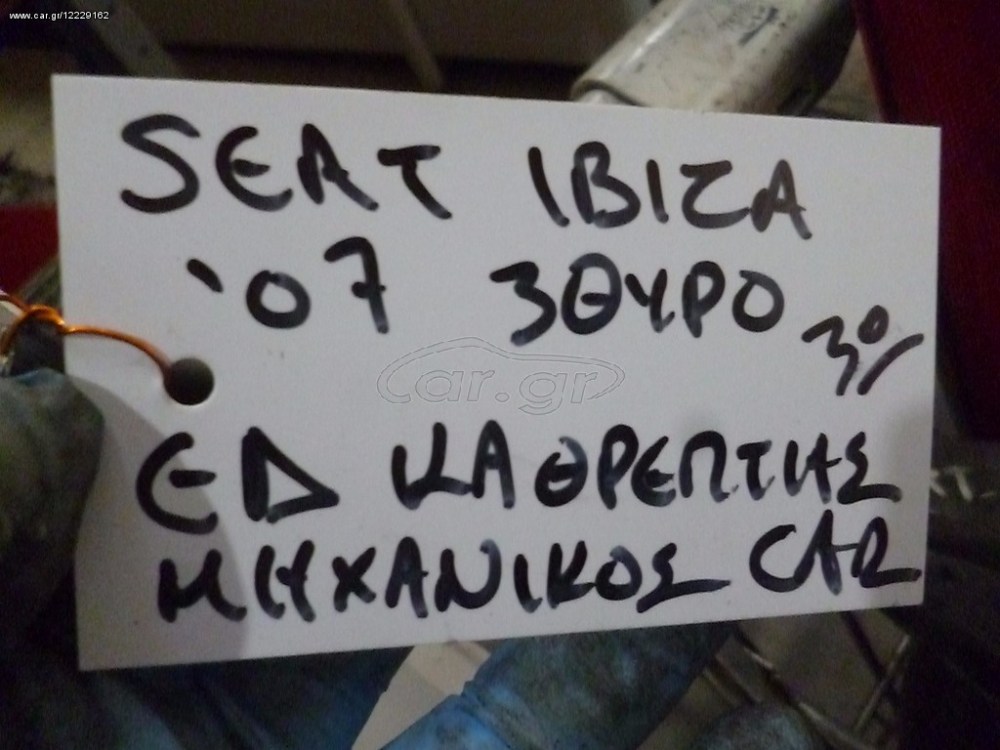 www.car.gr/12229162
SEAT IBIZA
'07 3ΘΥΡΟ
car.gr
ΕΔ ΚΑΘΡΕΠΤΗΣ
ΜΗΧΑΝΙΚΟΣ CAR